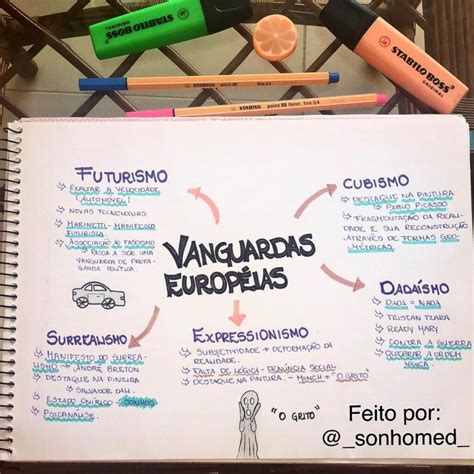 STABILO BOSS
ORIGINAL
STABILO BOSS
ORIGINAL
STABILO point 88 fine 0,4
STABILO point 88 Neon fine 0,4
FUTURISMO
EXALTAR A VELOCIDADE
(AUTOMÓVEL)
NOVAS TECNOLOGIAS.
MARINETTI - MANIFESTO
FUTURISTA
ASSOCIAÇÃO AO FASCISMO
PASSA A SER UMA
VANGUARDA DE PROPA-
GANDA POLÍTICA.
CUBISMO
DESTAQUE NA PINTURA
PABLO PICASSO
FRAGMENTAÇÃO DA REALI-
DADE E SUA RECONSTRUÇÃO
ATRAVÉS DE FORMAS GEO-
MÉTRICAS.
VANGUARDAS
EUROPÉIAS
DADAÍSMO
DADA = NADA
TRISTAN TZARA
READY MARY
CONTRA A GUERRA
QUEBRAR A ORDEM
LÓGICA.
SURREALISMO
MANIFESTO DO SURREA-
LISMO - ANDRÉ BRETON
DESTAQUE NA PINTURA
SALVADOR DALI
ESTADO ONÍRICO - SONHOS
PSICANÁLISE.
EXPRESSIONISMO
SUBJETIVIDADE + DEFORMAÇÃO DA
REALIDADE.
FALTA DE LÓGICA - DENÚNCIA SOCIAL
DESTAQUE NA PINTURA - MUNCH - "O GRITO"
"O GRITO"
Feito por:
@_sonhomed_